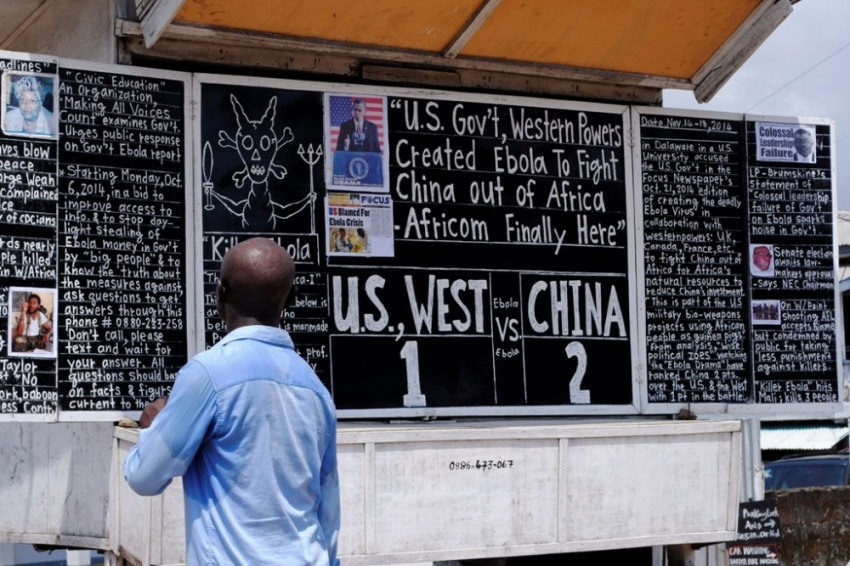 adlines"
aves blow
peace
orge Weah
complained
y of cpcians
ds nearly
ple killed
in W/Africa
Taylor
at "No
ork, baboon
ess Contr
"Civic Education"
An Organization,
"Making All Voices
Count" examines Gov't.
Urges public response
on Gov't Ebola report
"Starting Monday, Oct.
6, 2014, in a bid to
improve access to
info. & to stop day-
light stealing of
Ebola money in Gov't
by "big people" & to
know the truth about
the measures against,
ask questions to get
answers through this
phone # 0880-233-258
Don't call, please
text and wait for
your answer. All
questions should ba
on facts & figur
current to the
"Kill Ebola
below is
manmade
prof.
OBAMA
FOCUS
US Blamed For
Ebola Crisis
"U.S. Gov't, Western Powers
Created Ebola To Fight
China out of Africa
-Africom Finally Here"
U.S., WEST
1
Ebola
VS.
Ebola
CHINA
2
Date, Nov. 14-18, 2014
in Delaware in a U.S.
University accused
the U.S. Gov't in the
Focus Newspaper's
Oct. 21, 2014 edition
of creating the deadly
Ebola Virus" in
collaboration with
western powers: U.K,
Canada, France, etc.
to fight China out of
Africa for Africa's
natural resources to
reduce China's investment
"This is part of the U.S
military bio-weapons
projects using African
people as guinea pigs"
From analysis, "wise
political zoes" watching
the "Ebola Drama" have
ranked China 2 pts.
over the U.S. & the West
with 1 pt in the battle
Colossal
Leadership
Failure
LP-Brumskine's
statement of
Colossal leadership
failure of Gov't
on Ebola sparks
noise in Gov't
Senate election
awaits law-
makers approval
-Says, NEC Chairman
On W/Point
shooting AFL
accepts Blame
but condemned
by public for taking
less punishment
against killers.
"Killer Ebola" hits
Mali; kills 3 people
0886-473-067
AND
CAR WASHING